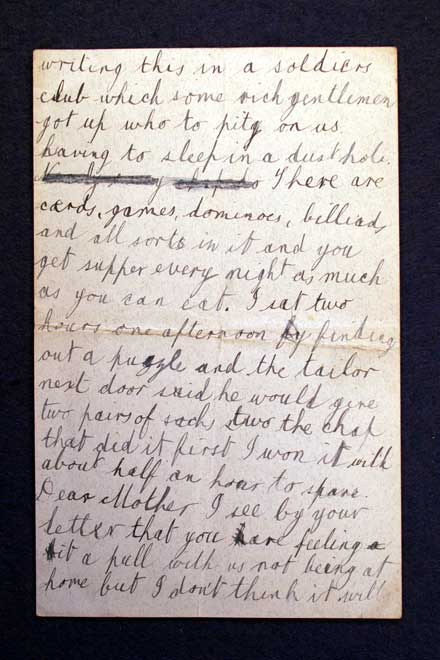 writing this in a soldiers
club which some rich gentlemen
got up who to pity on us
having to sleep in a dust hole.
There are
cards, games, dominoes, billiads
and all sorts in it and you
get supper every night as much
as you can eat. I sat two
hours one afternoon by finding
out a puzzle and the tailor
next door said he would give
two pairs of socks two the chap
that did it first I won it with
about half an hour to spare.
Dear Mother I see by your
letter that you are feeling a
bit a pull with us not being at
home but I dont think it will